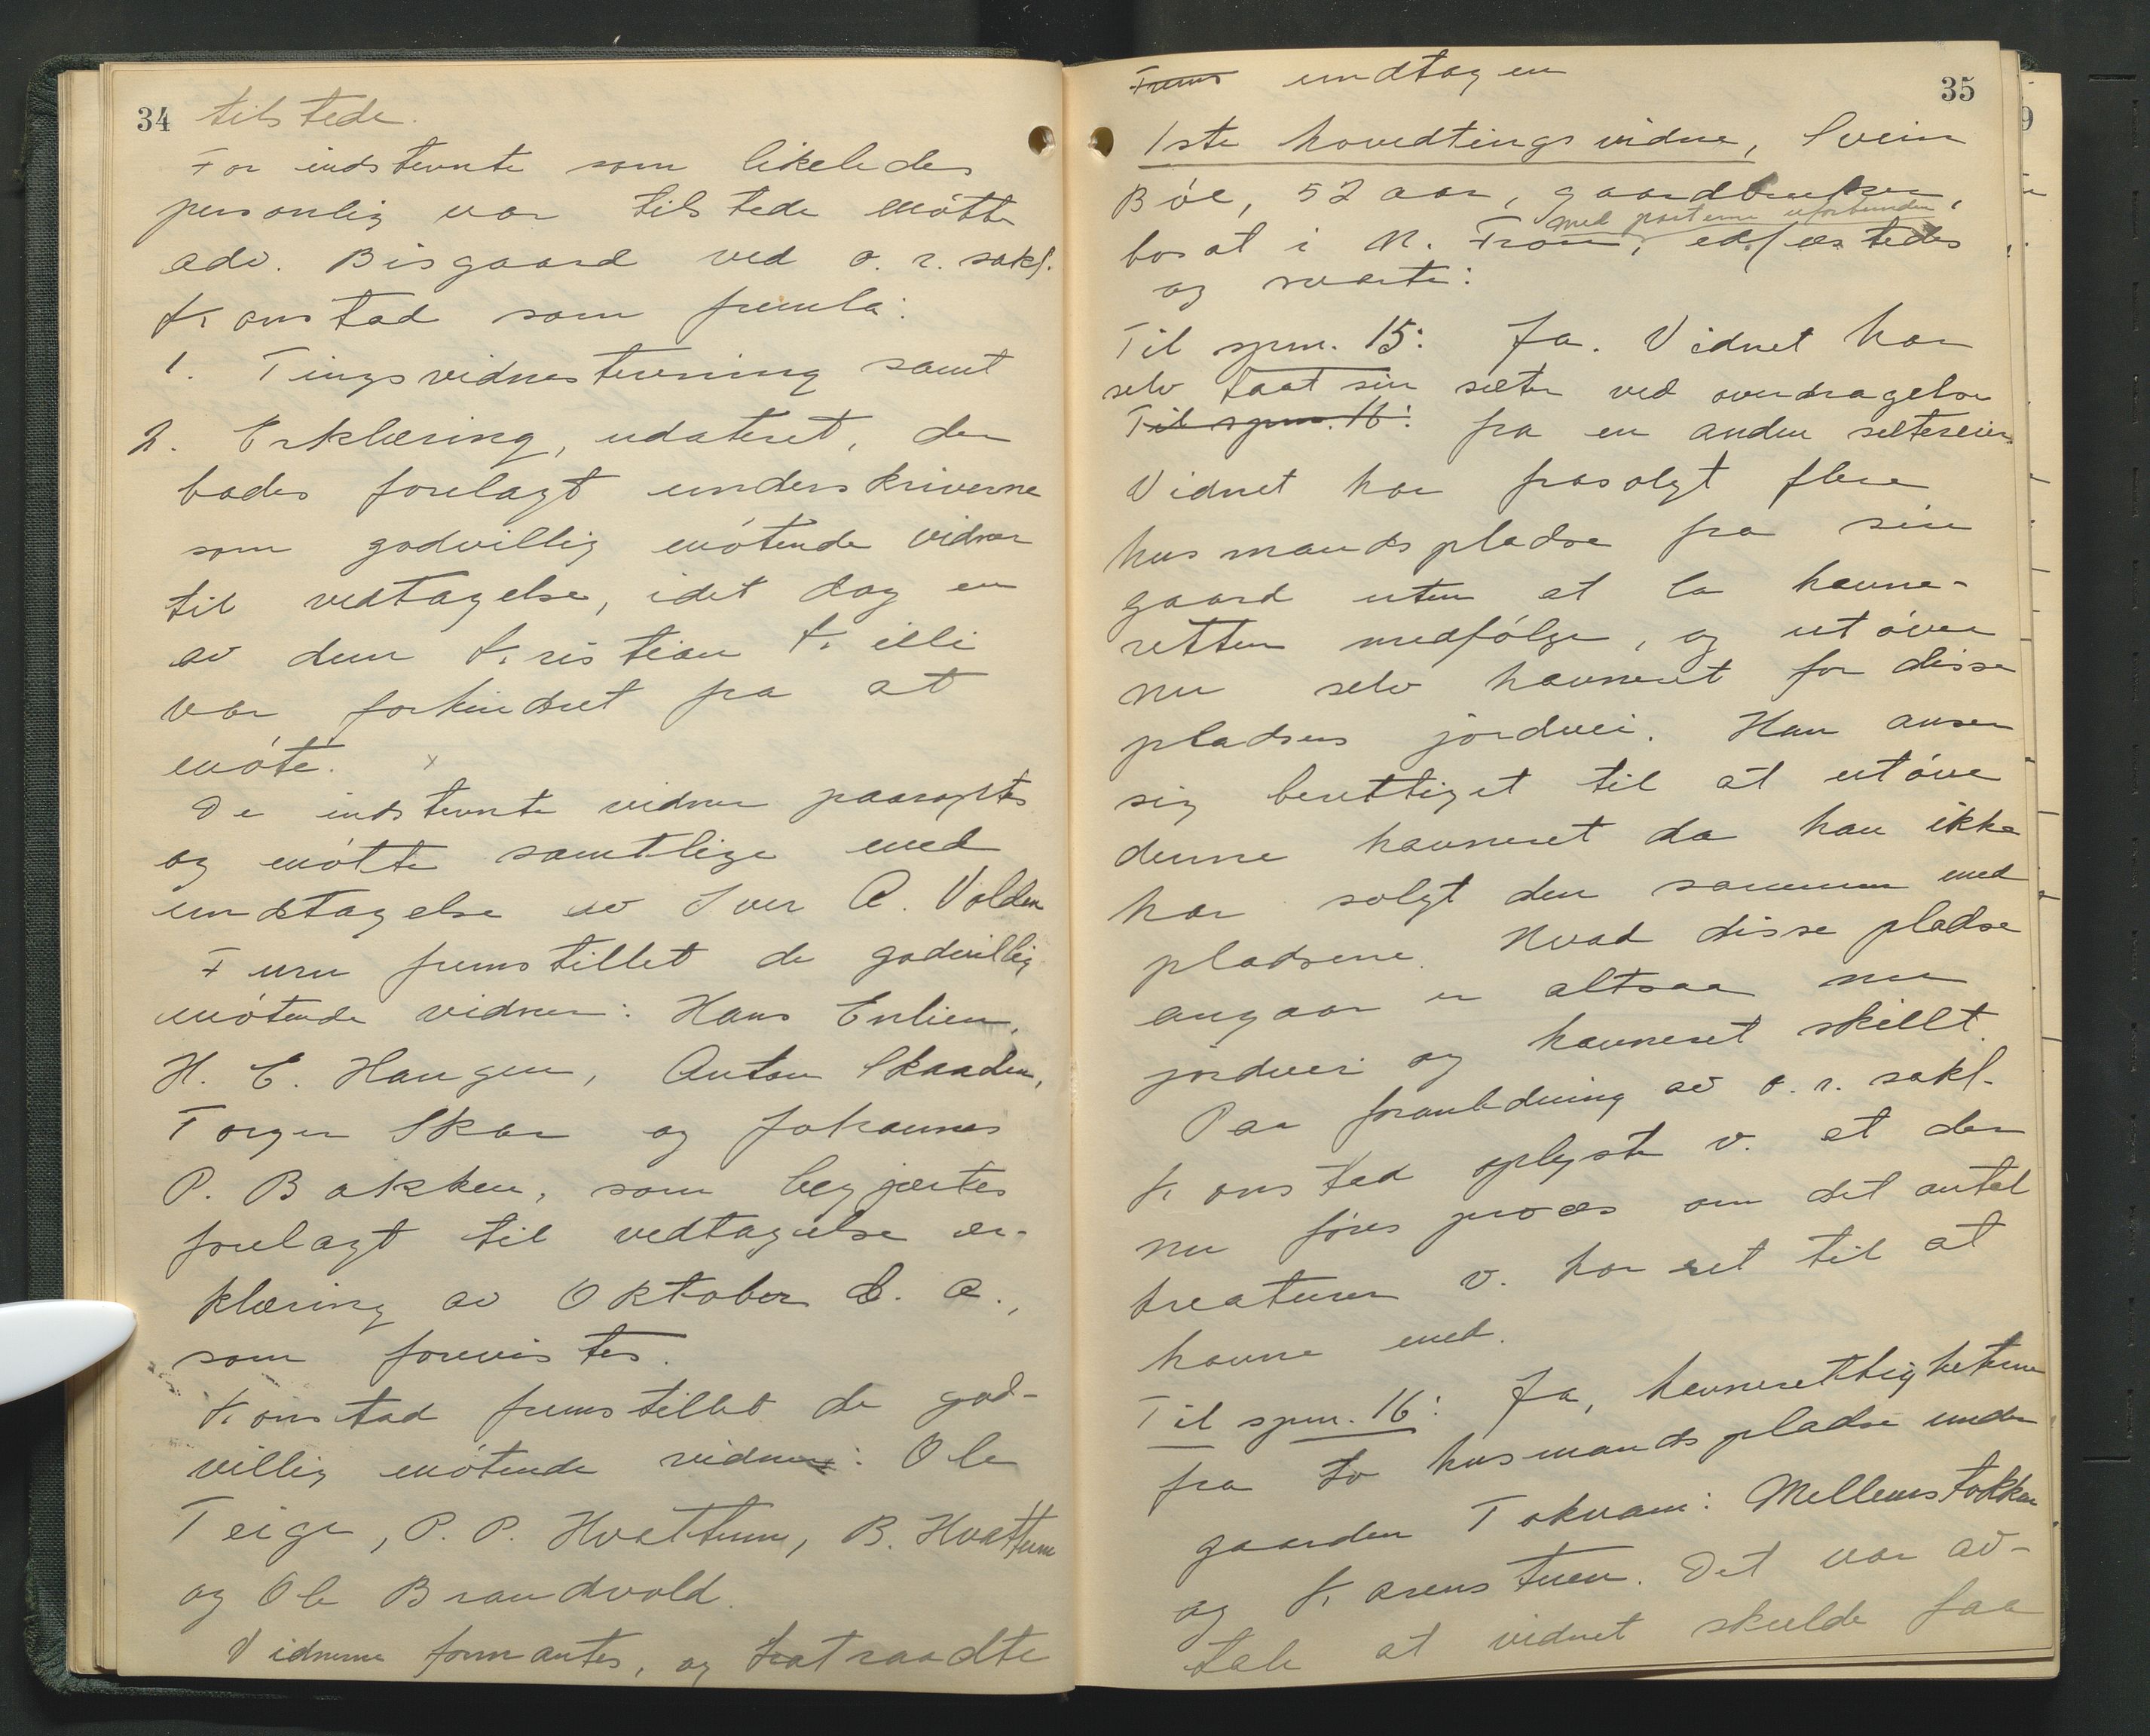 34 tilstede.
For indstevnte som likeledes
personlig var tilstede møtte
adv. Bisgaard ved o. r. sakf.
Konstad som fremla:
1. Tingsvidnestevning samt
2. Erklæring, udateret, der
bades forelagt underskriverne
som godvillig møtende vidner
til vedtagelse, idet dog en
av dem Kristian Killi
var forhindret fra at
møte.
De indstevnte vidner paaroptes
og møtte samtlige med
undtagelse av Iver A. Volden
Furu fremstillet de godvillig
møtende vidner: Hans Enlien,
H. E. Haugen, Anton Skaaden,
Torger Skar og Johannes
P. Bakken, som begjærtes
forelagt til vedtagelse er-
klæring av Oktober d. a.,
som forevistes.
Konstad fremstillet de god-
villig møtende vidner: Ole
Teige, P. P. Hvattum, B. Hvattum
og Ole Brandvold.
Vidnerne formantes, og fratraadte
35
Frems undtagen
1ste hovedtingsvidne, Svein
Bøe, 52 aar, gaardbruker,
med parterne uforbunden
bosat i N. Fron, edfæstedes
og svarte:
Til spm. 15: Ja. Vidnet har
selv faat sin sæter ved overdragelse
Til spm. 16: fra en anden sætereier.
Vidnet har frasolgt flere
husmandspladse fra sin
gaard uten at la havne-
retten medfølge, og utøver
nu selv havneret for disse
pladsers jordvei. Han anser
sig berettiget til at utøve
denne havneret da han ikke
har solgt den sammen med
pladsene. Hvad disse pladse
angaar er altsaa nu
jordvei og havneret skillt.
Paa foranledning av o. r. sakf.
Konstad oplyste v. at der
nu føres proces om det antal
kreaturer v. har ret til at
havne med.
Til spm. 16: Ja, havnerettigheterne
fra to husmandspladse under
gaarden Tokvam: Mellemstokken
og Karenstuen. Det var av-
tale at vidnet skulde faa